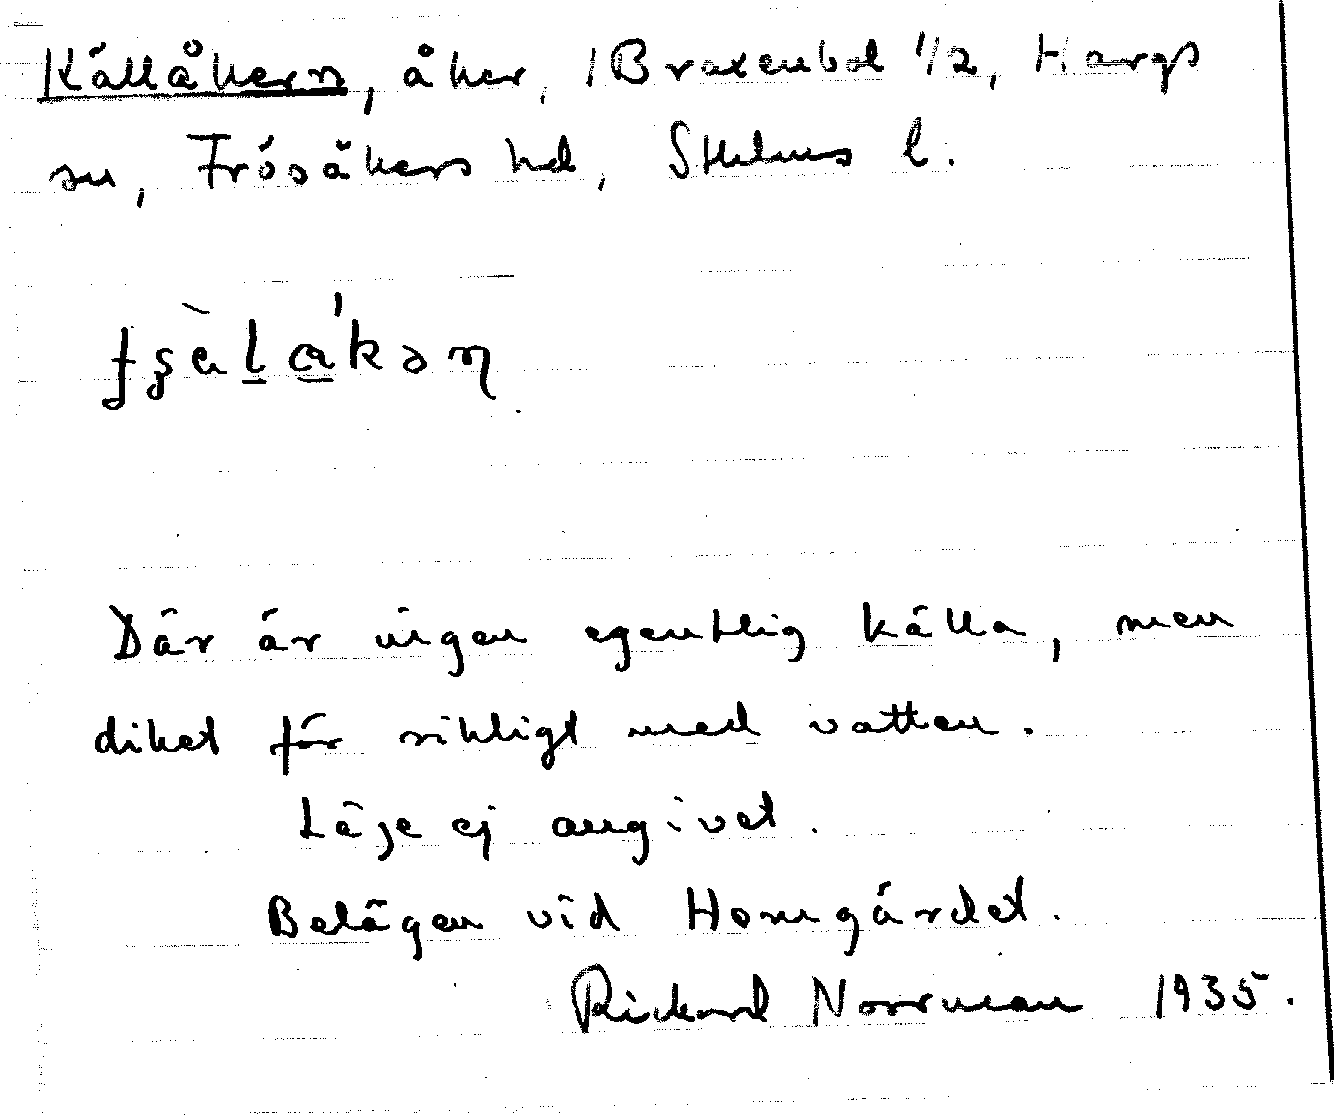 Källåkern, åker, 1 Braxenbol 1/2, Hargs
sn, Frösåkers hd, Sthlms l.
Där är ingen egentlig källa, men
diket för rikligt med vatten.
Läge ej angivet.
Belägen vid Homgärdet.
Rickard Norrman 1935.